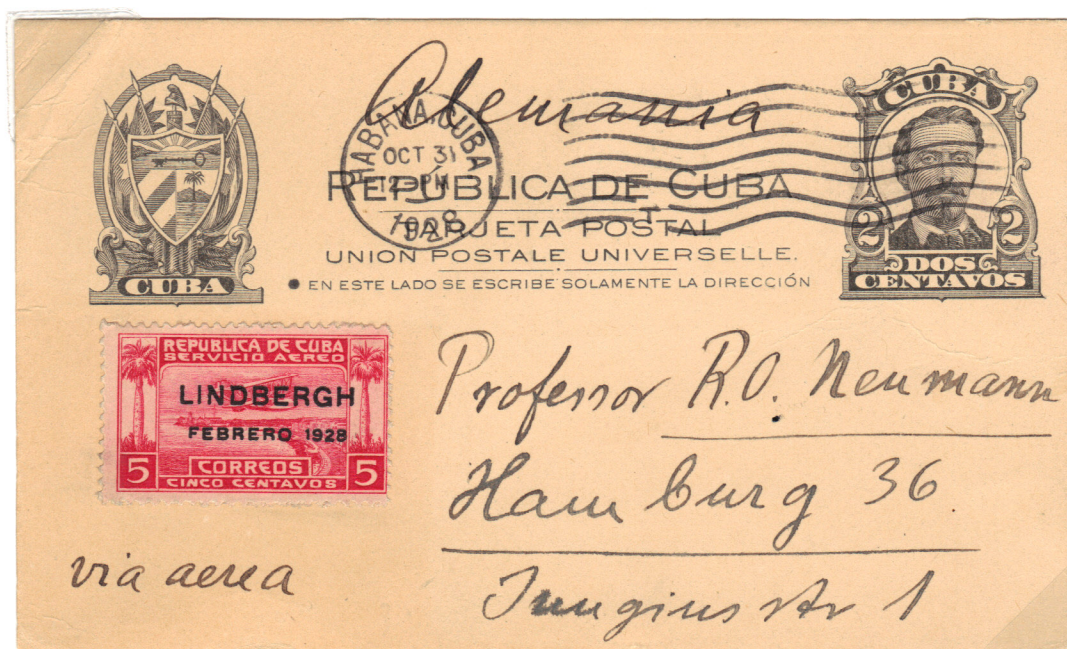 Alemania
HABANA, CUBA
OCT 31
12 PM
1928
CUBA
REPUBLICA DE CUBA
TARJETA POSTAL
UNION POSTALE UNIVERSELLE.
EN ESTE LADO SE ESCRIBE SOLAMENTE LA DIRECCIÓN
CUBA
2 2
DOS
CENTAVOS
REPUBLICA DE CUBA
SERVICIO AEREO
LINDBERGH
FEBRERO 1928
5 CORREOS 5
CINCO CENTAVOS
Professor R.O. Neumann
Hamburg 36
Jungiusstr 1
via aerea